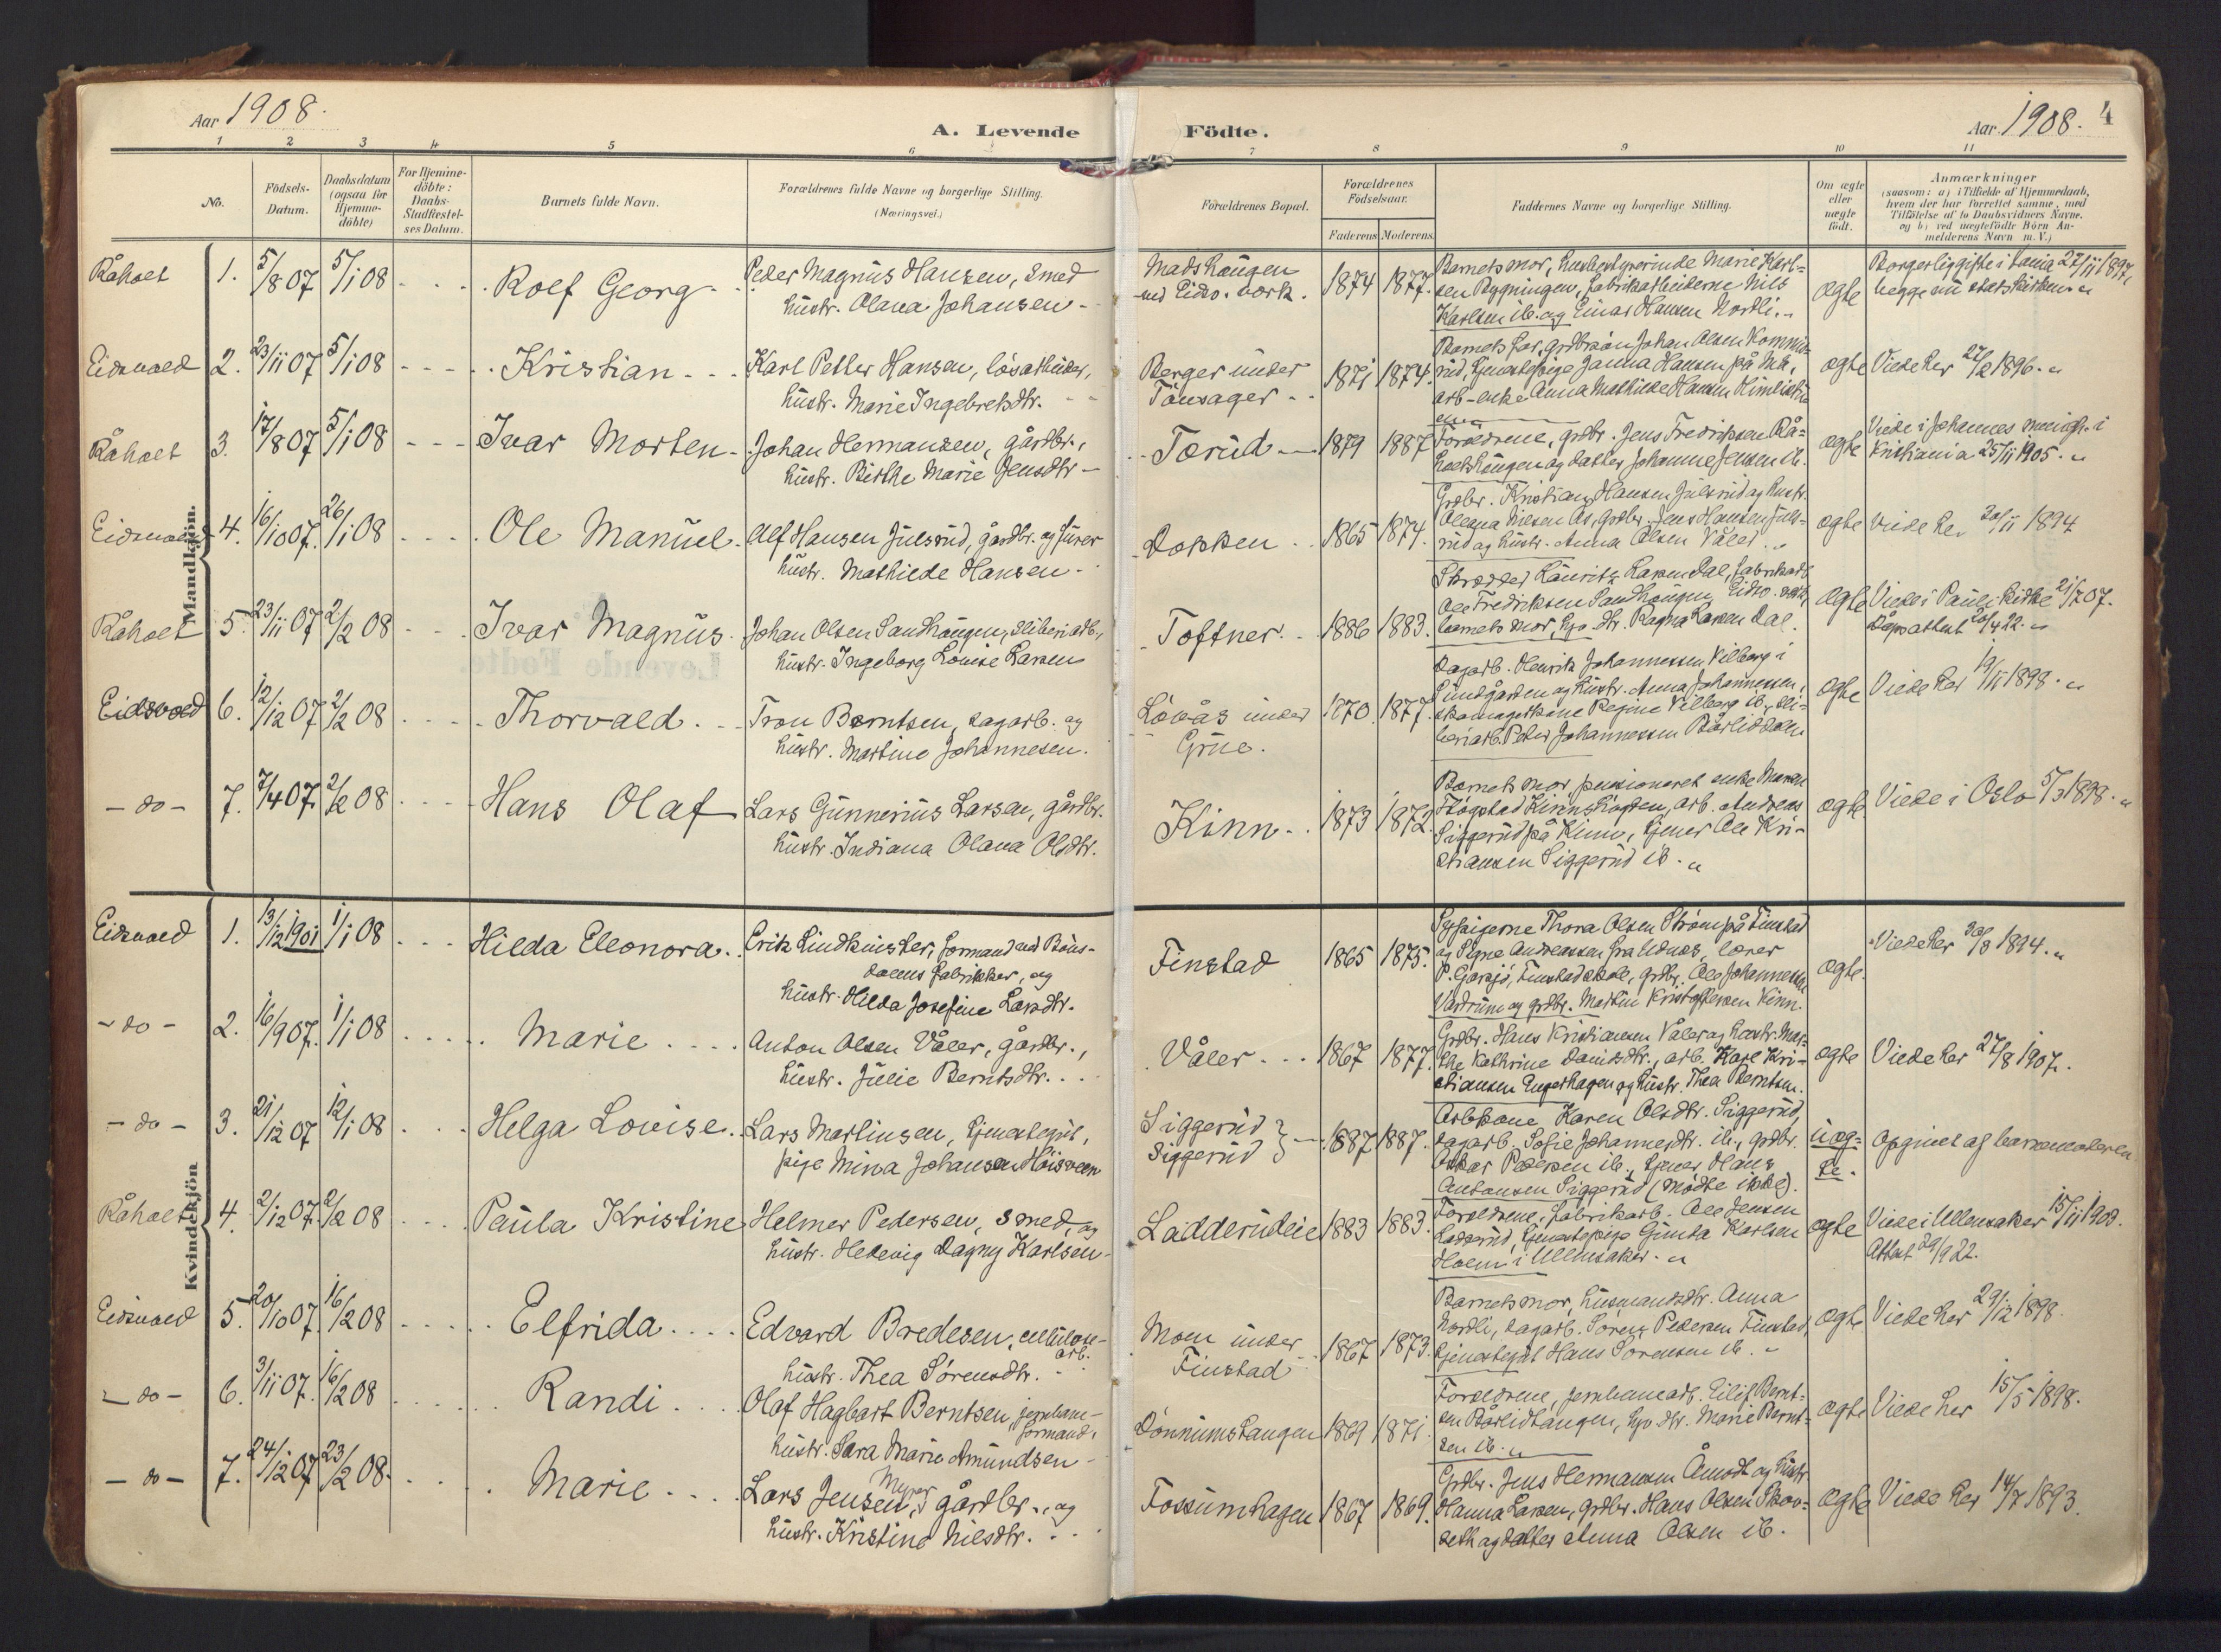 Aar 1908.
A. Levende
Födte.
Aar 1908. 4
1 2 3 4 5 6 7 8 9 10 11
No.
Födsels-
Datum.
Daabsdatum
(ogsaa for
Hjemme-
döbte)
For Hjemme-
döbte:
Daabs-
Stadfæstel-
ses Datum.
Barnets fulde Navn.
Forældrenes fulde Navne og borgerlige Stilling.
(Næringsvei.)
Forældrenes Bopæl.
Forældrenes
Födselsaar.
Faderens Moderens
Faddernes Navne og borgerlige Stilling.
Om ægte
eller
uægte
födt.
Anmærkninger
(saasom: a) i Tilfælde af Hjemmedaab,
hvem der har forrettet samme, med
Tilföielse af to Daabsvidners Navne.
og b) ved uægtefödte Börn An-
melderens Navn m. V.)
Mandkjön.
Råholt 1. 5/8 07 5/1 08 Rolf Georg
Peder Magnus Hansen, smed
hustr. Olava Johansen
Madshaugen
ved Eidsv. værk. 1874 1877.
Barnets mor,
Karlsen ib. og Einar Hansen Nordli.
ægte
27/11 1897,
Eidsvold 2. 23/11 07 5/1 08 Kristian
Karl Petter Hansen, lösarbeider,
hustr. Marie Ingebretsdtr.
Berger under
Tönsager 1871 1874.
Barnets far, grdbr.sön Johan Olsen
arb.-enke Anna Mathilde Hansen
ægte Viede her 27/2 1896.
Råholt 3. 17/8 07 5/1 08 Ivar Morten
Johan Hermansen, gårdbr.,
hustr. Birthe Marie Jensdtr
Torud 1879 1887
Forældrene, grdbr. Jens Fredriksen Rå-
holtshaugen og datter Johanne Jensen ib.
ægte Viede i Johannes menigh. i
Kristiania 25/11 1905.
Eidsvold 4. 16/10 07. 26/1 08 Ole Manuel
Alf Hansen Julsrud, gårdbr. og
hustr. Mathilde Hansen
Dokken 1865 1874.
Grdbr. Kristian Hansen Julsrud og hustr.
Oleana Nilsen Ås, grdbr. Jens Hansen Juls-
rud og hustr. Anna Olsen Våler.
ægte Viede her 20/11 1894
Råholt 5. 23/11 07 2/2 08 Ivar Magnus
Johan Olsen Sandhaugen, sliberiarb.,
hustr. Ingeborg Louise Larsen
Toftner. 1886 1883.
Skrædder Lauritz Larsen Dal, fabrikarb.
Ole Fredriksen Sandhaugen, Eidsv. værk,
barnets mor, Ragna Larsen Dal.
ægte Viede i Pauls Kirke 21/7 07.
Dåpsattest 20/4 22.
Eidsvold 6. 12/12 07 2/2 08 Thorvald
Tron Berntsen, dagarb. og
hustr. Martine Johannesen.
Lövås under
Grue. 1870. 1877.
Dagarb. Henrik Johannessen Vilberg i
Sundgården og hustr. Anna Johannessen,
skomagerkone Regine Vilberg ib., sli-
beriarb. Peter Johannessen Bårliddalen
ægte Viede her 19/11 1898.
- do - 7. 7/4 07. 2/2 08 Hans Olaf
Lars Gunnerius Larsen, gårdbr.
hustr. Indiana Olava Olsdtr.
Kinn 1873 1872.
Barnets mor, pensioneret enke Maren
arb. Andreas
Siggerud på Kinn, tjener Ole Kri-
stiansen Siggerud ib.
ægte Viede i Oslo 5/3 1898.
Kvindekjön
Eidsvold 1. 13/12 1901 1/1 08 Hilda Eleonora.
Erik Lindkvister, formand ved Böns-
dalens fabrikker, og
hustr. Hilda Josefine Larsdtr.
Finstad 1865 1875.
Sypigerne Thora Olsen Ström på Finstad
og Signe Andreassen fra Udnes, lærer
P. Garsjö, Finstad skole, grdbr. Ole Johannessen
Vardrum og grdbr. Martin Kristoffersen Kinn.
ægte. Viede her 30/8 1894.
- do - 2. 16/9 07. 1/1 08 Marie
Anton Olsen Våler, gårdbr.,
hustr. Julie Berntsdtr.
Våler 1867 1877.
Grdbr. Hans Kristiansen Våler og hustr. Mar-
the Kathrine Davidsdtr., arb. Karl Kri-
stiansen Engerhagen og hustr. Thea Berntsen.
ægte Viede her 27/8 1907.
- do - 3. 21/12 07 12/1 08 Helga Louise.
Lars Martinsen, tjenestegut,
pige Mina Johansen Höisveen
Siggerud
Siggerud 1887 1887.
Arb.kone Karen Olsdtr. Siggerud,
dagarb. Sofie Johannesdtr. ib., grdbr.
Oskar Pedersen ib., tjener Hans
Antonsen Siggerud (mödte ikke).
uæg-
te. Opgivet af barnemoderen
Råholt 4. 2/12 07. 2/2 08 Paula Kristine
Helmer Pedersen, smed, og
hustr. Hedevig Dagny Karlsen
Ladderudeie 1883 1883.
Forældrene, fabrikarb. Ole Jensen
Ladderud, tjenestepige Gunda Karlsen
Holm i Ullensaker.
ægte Viede i Ullensaker 15/11 1903.
Attest 29/9 22.
Eidsvold 5. 20/10 07. 16/2 08 Elfrida
Edvard Bredesen, cellulose-
arb.
hustr. Thea Sörensdtr.
Moen under
Finstad 1867 1873.
Barnets mor, husmandsdtr. Anna
Nordli, dagarb. Sörens Pedersen Finstad,
tjenestegut Hans Sörensen ib.
ægte Viede her 29/12 1898.
- do - 6. 3/11 07. 16/2 08 Randi
Olaf Hagbart Berntsen, jernbane-
formand,
hustr. Sara Marie Amundsen
Dönnumstangen 1869 1871.
Forældrene, jernbanearb. Eilif Bernt-
sen Bårlidtangen, Marie Bernt-
sen ib.
ægte Viede her 15/5 1898.
- do - 7. 24/12 07 23/2 08. Marie
Myrer
Lars Jensen, gårdbr., og
hustr. Kristine Nilsdtr.
Fossumhagen 1867 1869.
Grdbr. Jens Hermansen Åmodt og hustr.
Hanna Larsen, grdbr. Hans Olsen Skov-
seth og datter Anna Olsen ib.
ægte Viede her 14/7 1893.